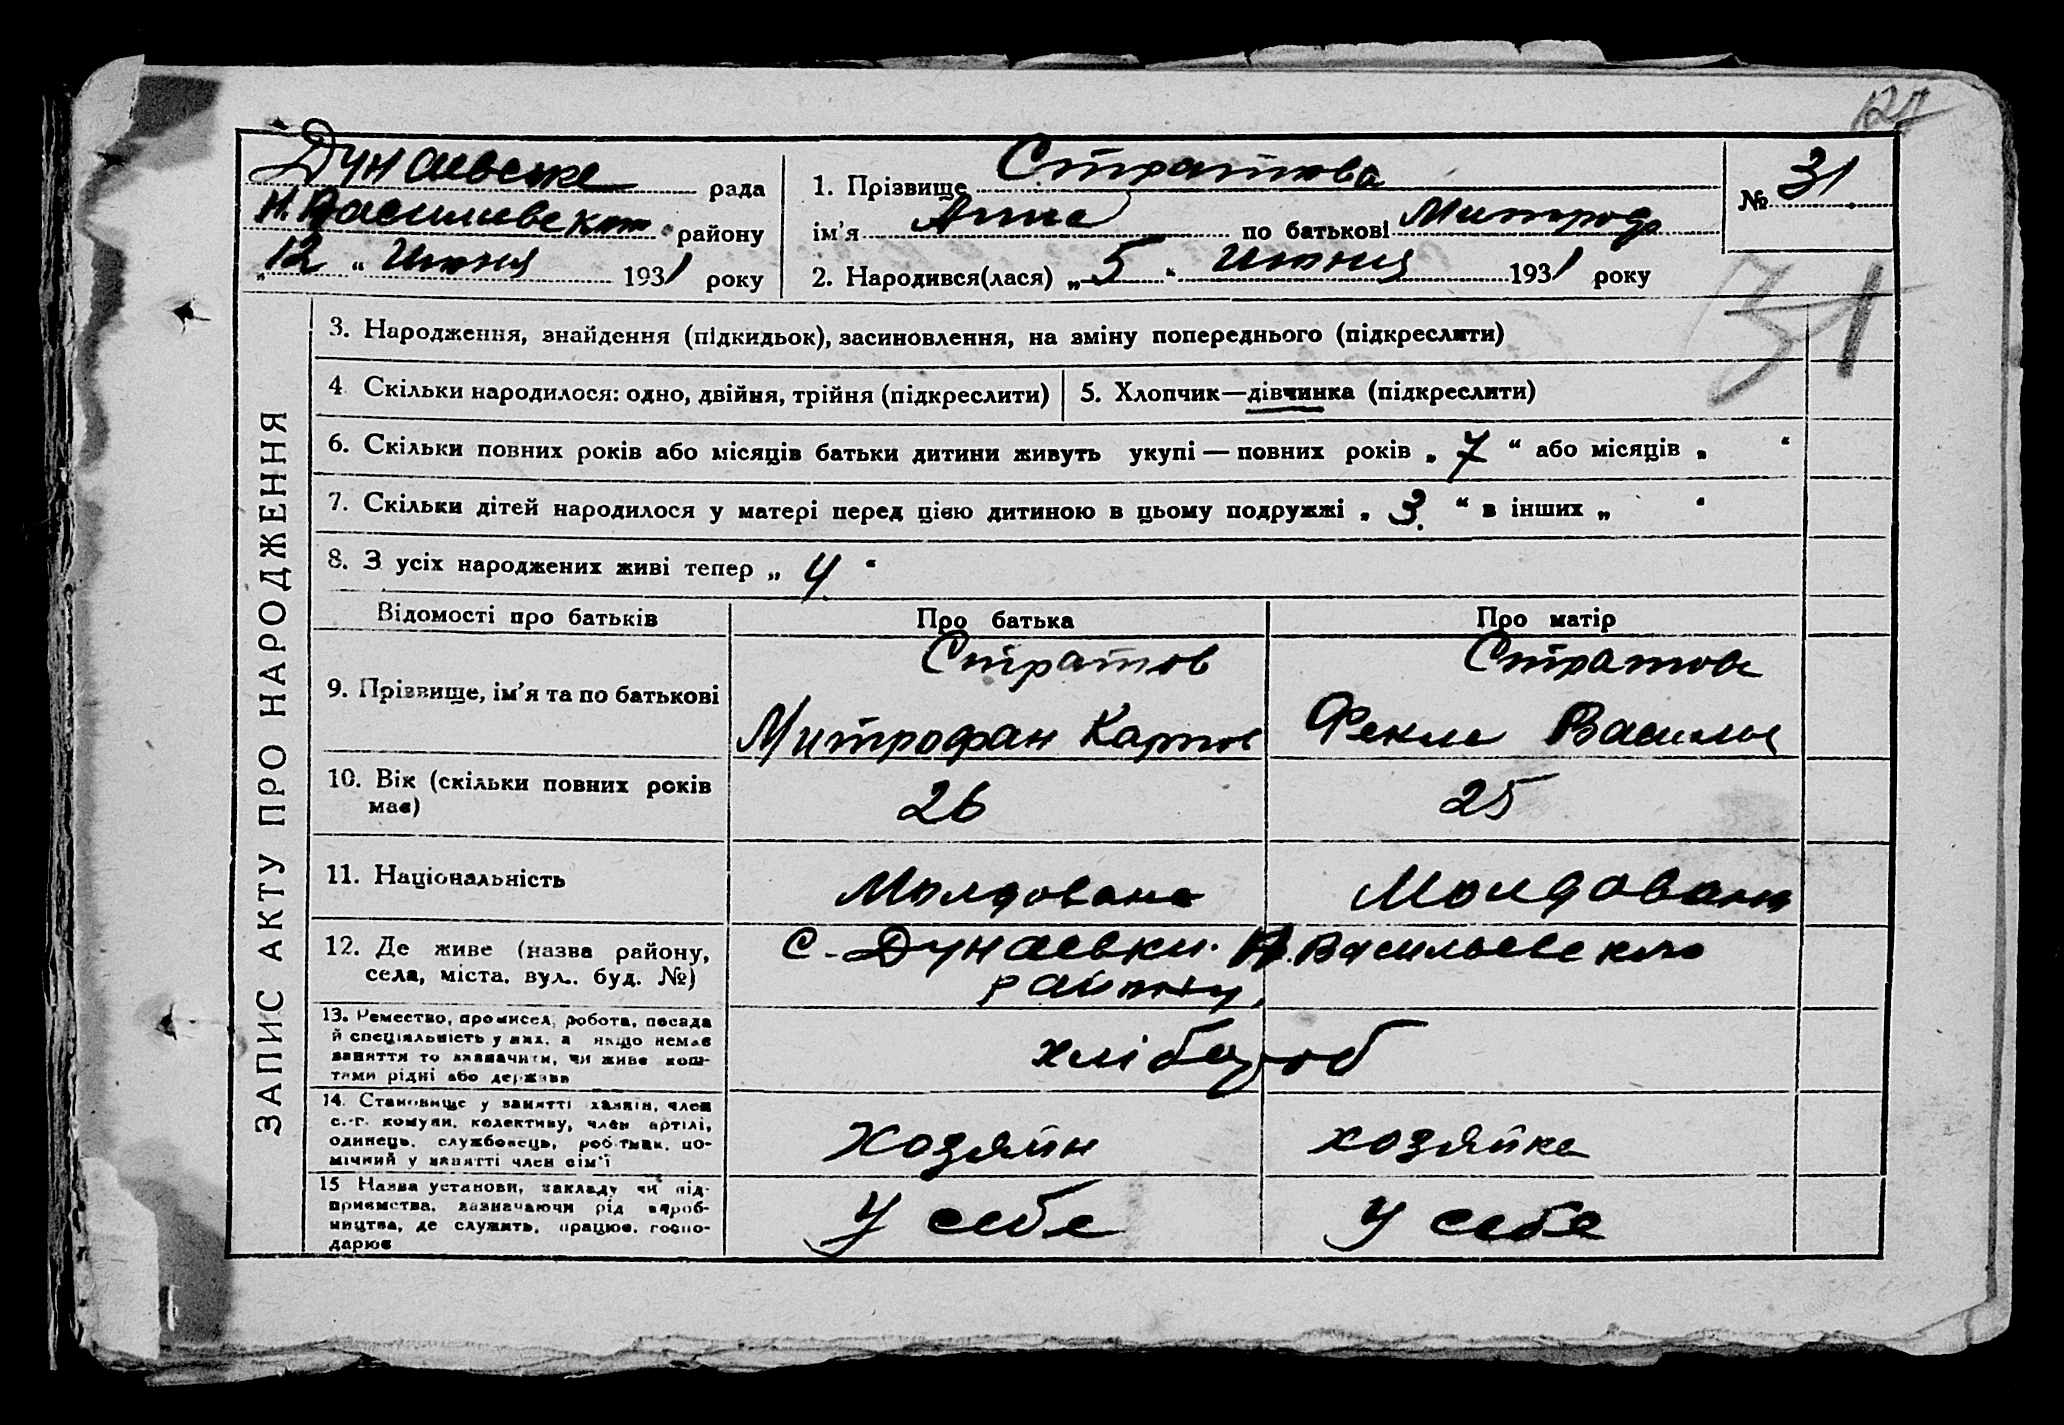 Дунаевске рада
Н. Василиевского району
„12“ Июня 1931 року
1. Прізвище Стратова
ім’я Анна по батькові Митрофа
2. Народився(лася) „5“ Июня 1931 року
№ 31
31
ЗАПИС АКТУ ПРО НАРОДЖЕННЯ
3. Народження, знайдення (підкидьок), засиновлення, на зміну попереднього (підкреслити)
4 Скільки народилося: одно, двійня, трійня (підкреслити)
5. Хлопчик—дівчинка (підкреслити)
6. Скільки повних років або місяців батьки дитини живуть укупі — повних років „7“ або місяців „ “
7. Скільки дітей народилося у матері перед цією дитиною в цьому подружжі „3“ в інших „ “
8. З усіх народжених живі тепер „4“
Відомості про батьків Про батька Про матір
9. Прізвище, ім’я та по батькові
Стратов
Митрофан Карпов
Стратова
Фекла Василь
10. Вік (скільки повних років має)
26 25
11. Національність
Молдована Молдована
12. Де живе (назва району, села, міста, вул., буд. №)
с. Дунаевки. Н. Васильевского
району,
13. Ремество, промисел, робота, посада
й спеціяльність у них, а якщо немає
заняття то зазначити, чи живе кош-
тами рідні або держави
хлібороб
14. Становище у занятті хазяїн, член
с.-г. комуни, колективу, член артілі,
одинець, службовець, робітник, по-
мічний у занятті член сім’ї
Хозяйн хозяйка
15 Назва установи, закладу чи під-
приємства, зазначаючи рід вироб-
ництва, де служить, працює, госпо-
дарює
У себе У себе